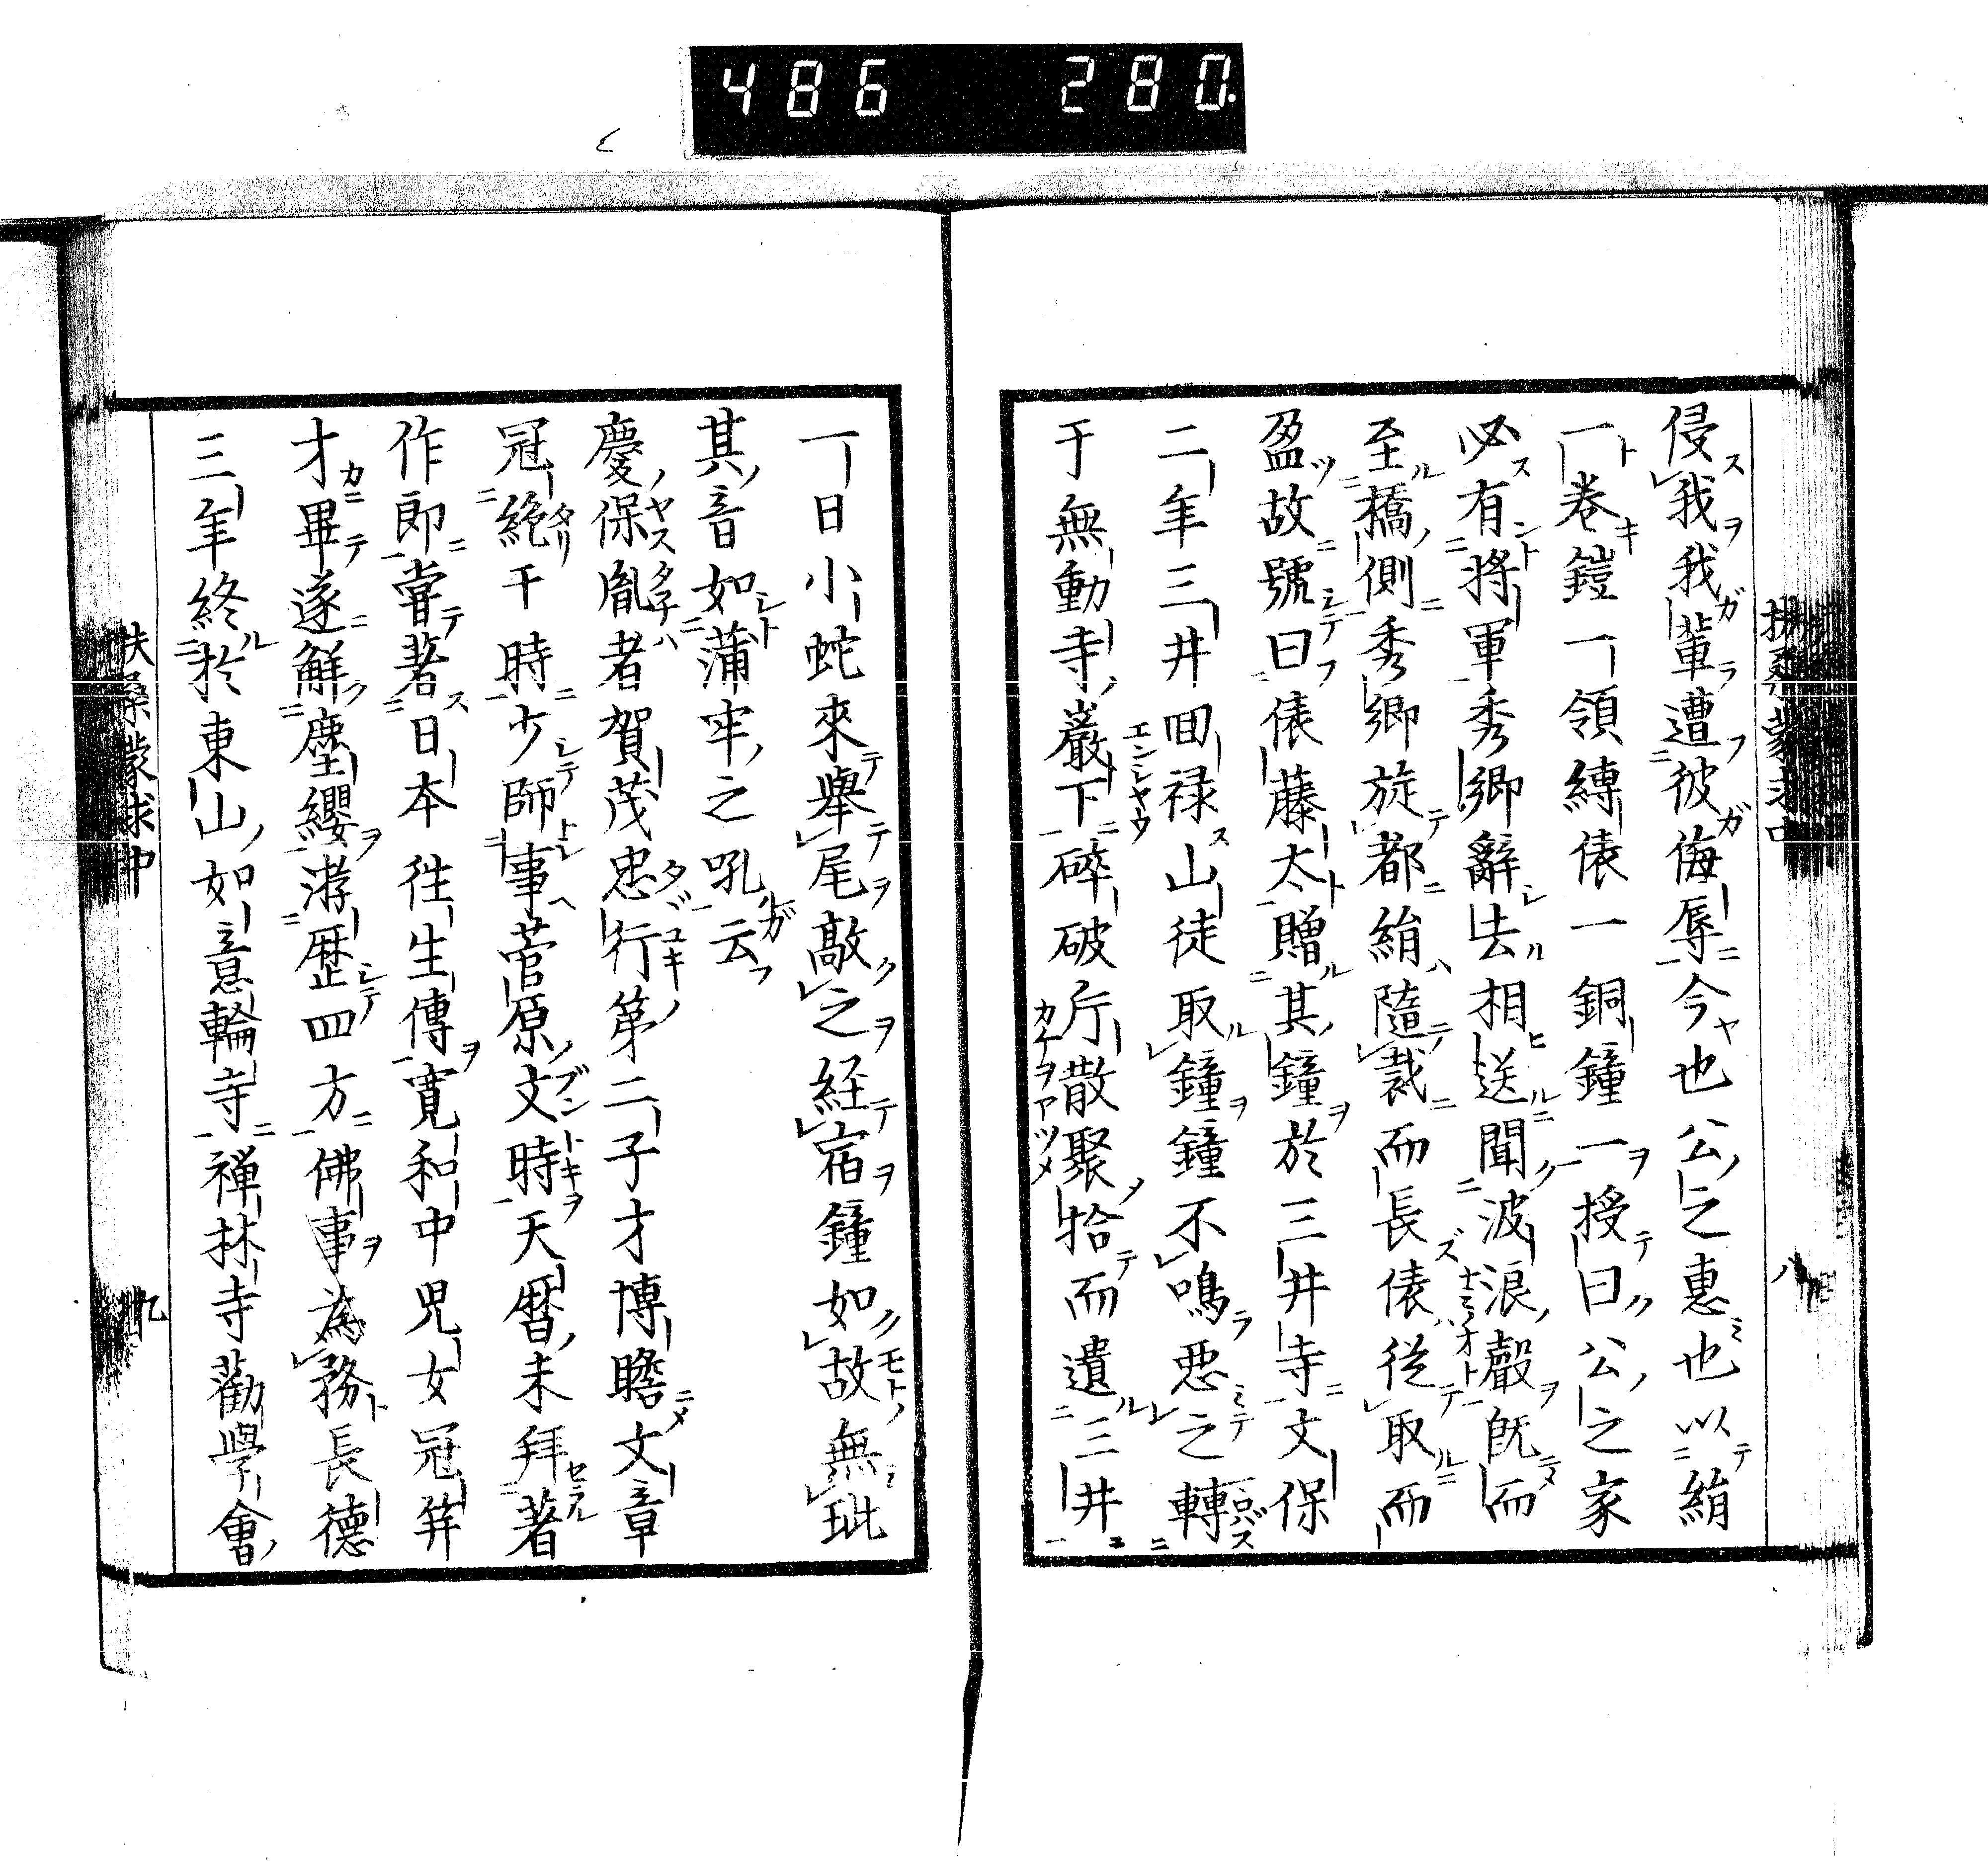 486 280
侵我我輩遭彼侮辱今也公之惠也以絹
一卷鎧一領縛俵一銅鐘一授曰公之家
必有將軍秀卿辭去相送聞波浪聲既而
至橋側秀卿旋都絹隨裁而長俵從取而
盈故號曰俵藤太贈其鐘於三井寺文保
二年三井回禄山徒取鐘鐘不鳴惡之轉
于無動寺巖下碎破斤散聚拾而遺三井
一日小蛇來舉尾敲之経宿鐘如故無玼
其音如蒲牢之吼云
慶保胤者賀茂忠行第二子才博瞻文章
冠絶干時少師事菅原文時天曆末拜著
作郎嘗著日本徃生傳寬和中児女冠笄
才畢遂解塵纓游歷四方佛事為務長德
三年終於東山如意輪寺禅林寺勸學會
扶桑蒙求中
九